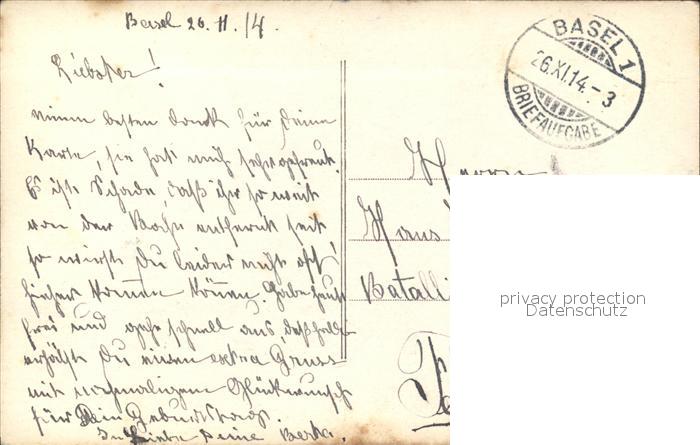 Basel 26.11./14.
Liebster!
Meinen besten Dank für Deine
Karte, sie hat mich sehr gefreut.
Es ist Schade, daß ihr so weit
von der Bahn entfernt seit
so wirst Du leider nicht oft
hieher kommen können. Habe heute
frei und gehe schnell aus, deßhalb
erhälst Du einen extra Gruss
mit nochmaligem Glückwunsch
für Dein Geburtstag.
In Liebe Deine Berta.
BASEL 1
26.XI.14.-3
BRIEFAUFGABE
Herrn
Hans
Batalli
privacy protection
Datenschutz